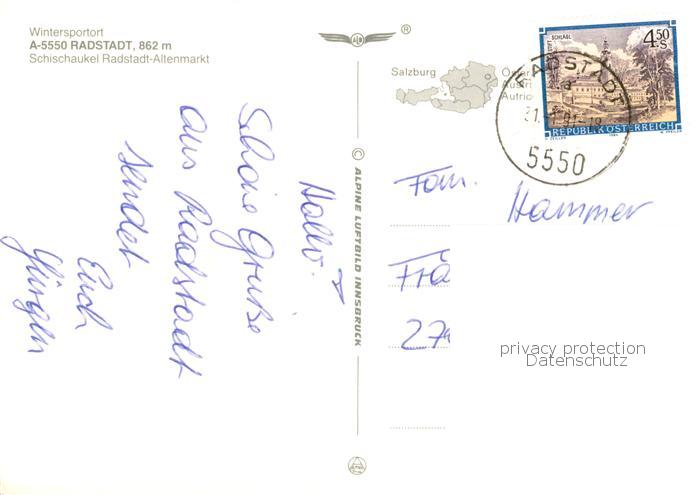 Wintersportort
A-5550 RADSTADT, 862 m
Schischaukel Radstadt-Altenmarkt
®
Salzburg
Öster
Austri
Autric
STIFT SCHLÄGL
4.50 S
REPUBLIK ÖSTERREICH
RADSTADT
a
5550
© ALPINE LUFTBILD INNSBRUCK
Hallo!
Schöne Grüße
aus Radstadt
sendet
Euch
Jürgen
Fam.
Hammer
Frä
27
privacy protection
Datenschutz